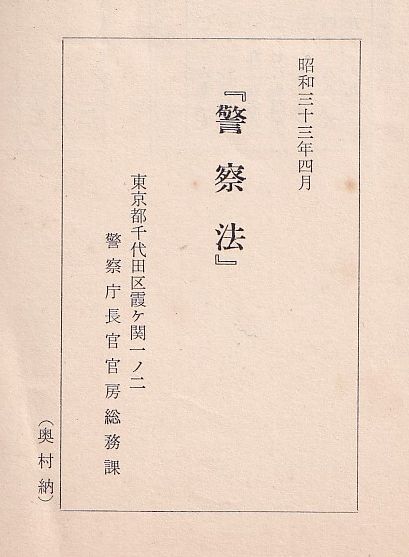 昭和三十三年四月
『警察法』
東京都千代田区霞ケ関一ノ二
警察庁長官官房総務課
（奥村納）